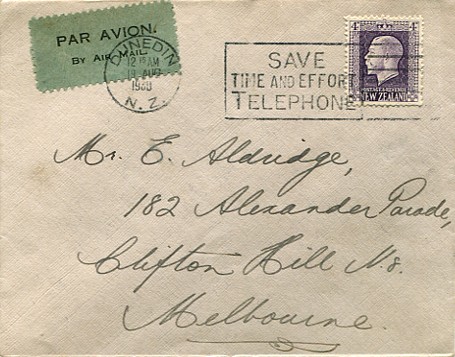 PAR AVION.
BY AIR MAIL.
DUNEDIN
12 15 AM
AUG
N. Z.
SAVE
TIME AND EFFORT
TELEPHONE
4d
POSTAGE & REVENUE
NEW ZEALAND
Mr. E. Aldridge,
182 Alexander Parade,
Clifton Hill N.8.
Melbourne.